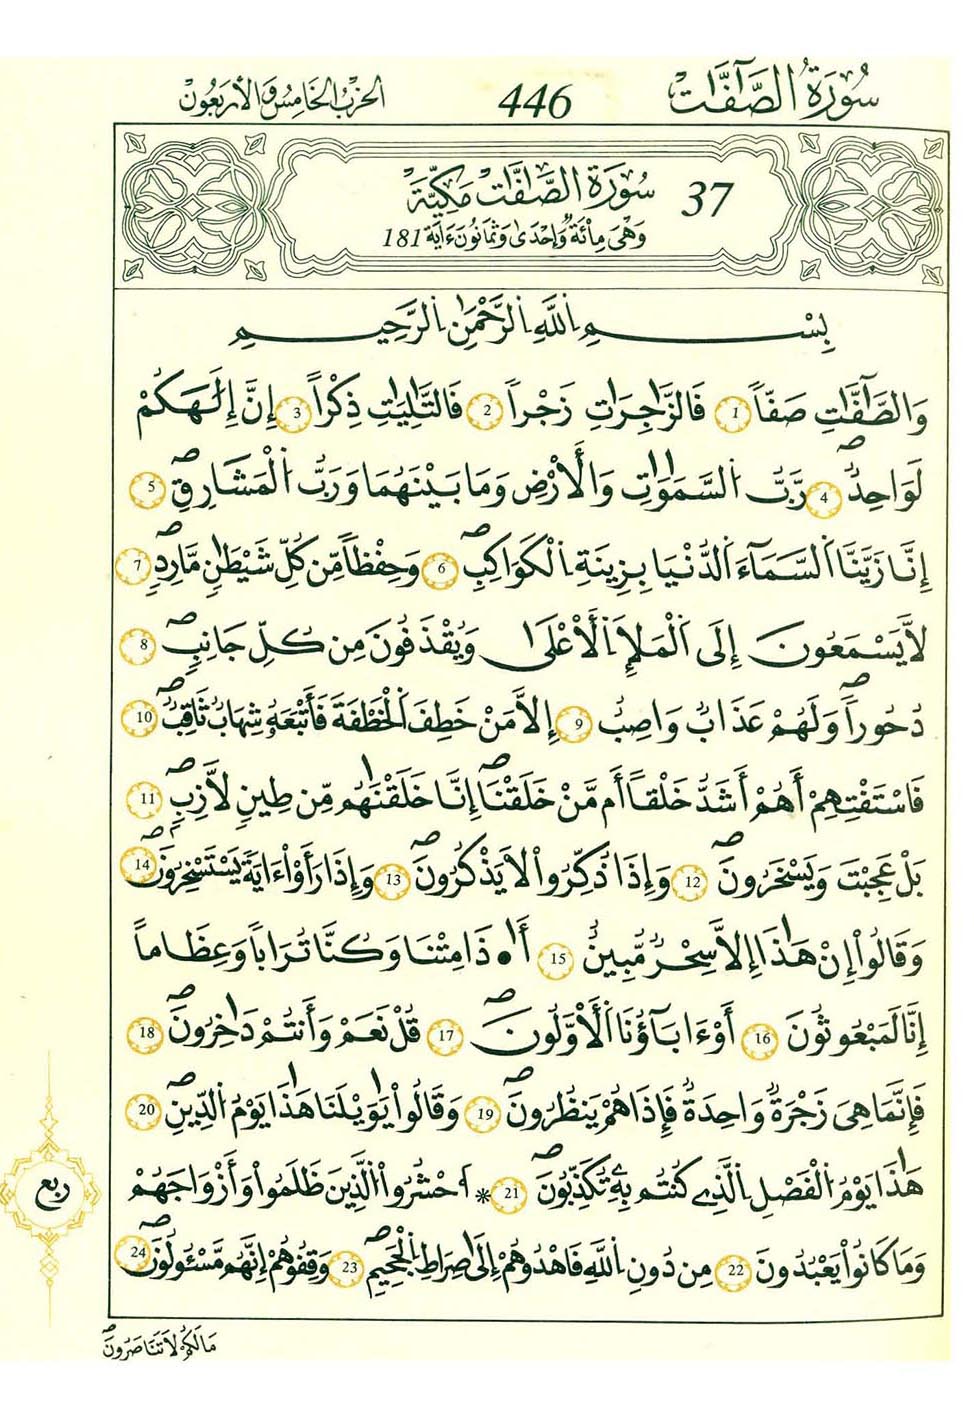 سُورَةُ الصَّآفَّاتْ 446 الحزب الخامس والأربعون
37 سُورَةُ الصَّافَّاتْ مَكِّيَّة
وَهْيَ مِائَةٌ وَإِحْدَىٰ وَثَمَانُونَ ءَايَة 181
بِسْمِ اِللَّهِ اِلرَّحْمَٰنِ اِلرَّحِيمِ
وَالصَّٰٓفَّٰتِ صَفّاٗ 1 فَالزَّٰجِرَٰتِ زَجْراٗ 2 فَالتَّٰلِيَٰتِ ذِكْراً 3 إِنَّ إِلَٰهَكُمْ
لَوَاحِدٞ 4 رَّبُّ اُلسَّمَٰوَٰتِ وَالْأَرْضِ وَمَا بَيْنَهُمَا وَرَبُّ اُلْمَشَارِقِ 5
إِنَّا زَيَّنَّا اَلسَّمَآءَ اَلدُّنْيَا بِزِينَةِ اِلْكَوَاكِبِ 6 وَحِفْظاٗ مِّن كُلِّ شَيْطَٰنٖ مَّارِدٖ 7
لَّا يَسْمَعُونَ إِلَى اَلْمَلَإِ اِلْأَعْلَىٰ وَيُقْذَفُونَ مِن كُلِّ جَانِبٖ 8
دُحُوراٗ وَلَهُمْ عَذَابٞ وَاصِبٌ 9 إِلَّا مَنْ خَطِفَ اَلْخَطْفَةَ فَأَتْبَعَهُۥ شِهَابٞ ثَاقِبٞ 10
فَاسْتَفْتِهِمْ أَهُمْ أَشَدُّ خَلْقاً أَم مَّنْ خَلَقْنَا إِنَّا خَلَقْنَٰهُم مِّن طِينٖ لَّازِبٖ 11
بَلْ عَجِبْتَ وَيَسْخَرُونَ 12 وَإِذَا ذُكِّرُواْ لَا يَذْكُرُونَ 13 وَإِذَا رَأَوْاْ ءَايَةٗ يَسْتَسْخِرُونَ 14
وَقَالُواْ إِنْ هَٰذَا إِلَّا سِحْرٞ مُّبِينٌ 15 أَٰ•ذَا مِتْنَا وَكُنَّا تُرَاباٗ وَعِظَاماً
إِنَّا لَمَبْعُوثُونَ 16 أَوْ ءَابَآؤُنَا اَلْأَوَّلُونَ 17 قُلْ نَعَمْ وَأَنتُمْ دَٰخِرُونَ 18
فَإِنَّمَا هِيَ زَجْرَةٞ وَاحِدَةٞ فَإِذَا هُمْ يَنظُرُونَ 19 وَقَالُواْ يَٰوَيْلَنَا هَٰذَا يَوْمُ اُلدِّينِ 20
هَٰذَا يَوْمُ اُلْفَصْلِ اِلَّذِے كُنتُم بِهِۦ تُكَذِّبُونَ 21 * اَحْشُرُواْ اُلَّذِينَ ظَلَمُواْ وَأَزْوَاجَهُمْ
وَمَا كَانُواْ يَعْبُدُونَ 22 مِن دُونِ اِللَّهِ فَاهْدُوهُمْ إِلَىٰ صِرَاطِ اِلْجَحِيمِ 23 وَقِفُوهُمْ إِنَّهُم مَّسْـُٔولُونَ 24
ربع
مَا لَكُمْ لَا تَنَاصَرُونَ